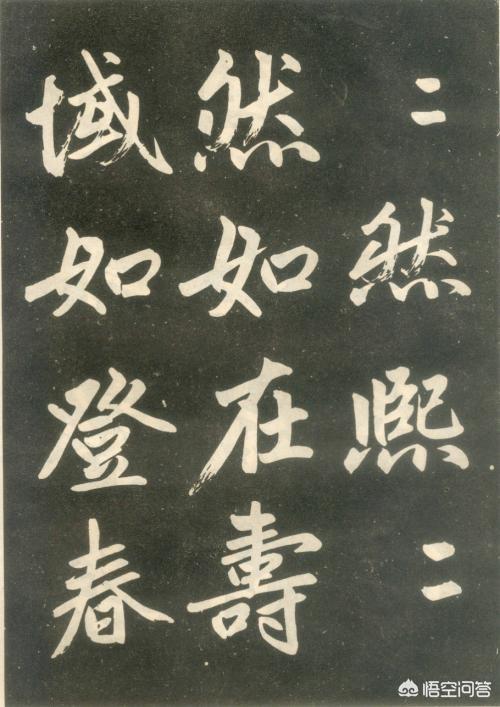 二然熙二
然如在壽
域如登春
悟空问答